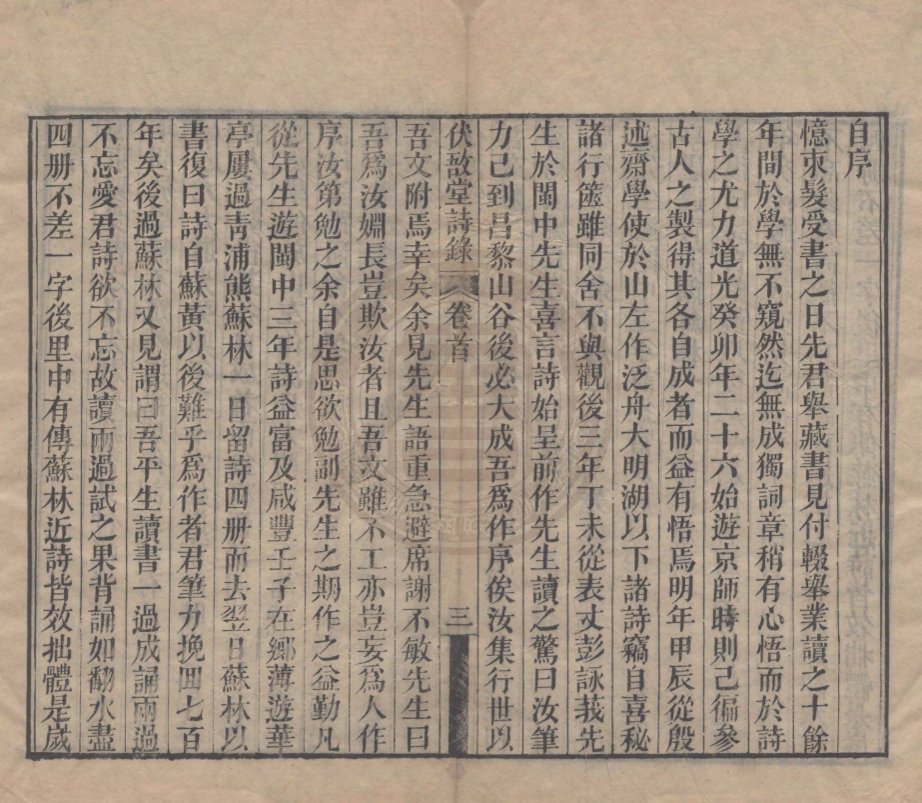 自序
憶束髮受書之日先君舉藏書見付輟舉業讀之十餘
年間於學無不窺然迄無成獨詞章稍有心悟而於詩
學之尤力道光癸卯年二十六始遊京師時則己徧參
古人之製得其各自成者而益有悟焉明年甲辰從殷
述齋學使於山左作泛舟大明湖以下諸詩竊自喜秘
諸行篋雖同舍不與觀後三年丁未從表丈彭詠莪先
生於閩中先生喜言詩始呈前作先生讀之驚曰汝筆
力己到昌黎山谷後必大成吾爲作序俟汝集行世以
伏敔堂詩錄 卷首 三
吾文附焉幸矣余見先生語重急避席謝不敏先生曰
吾爲汝婣長豈欺汝者且吾文雖不工亦豈妄爲人作
序汝第勉之余自是思欲勉副先生之期作之益勤凡
從先生遊閩中三年詩益富及咸豐壬子在鄉薄遊華
亭屢過靑浦熊蘇林一日留詩四册而去翌日蘇林以
書復曰詩自蘇黃以後難乎爲作者君筆力挽回七百
年矣後過蘇林又見謂曰吾平生讀書一過成誦兩過
不忘愛君詩欲不忘故讀兩過試之果背誦如翻水盡
四册不差一字後里中有傳蘇林近詩皆效拙體是歲